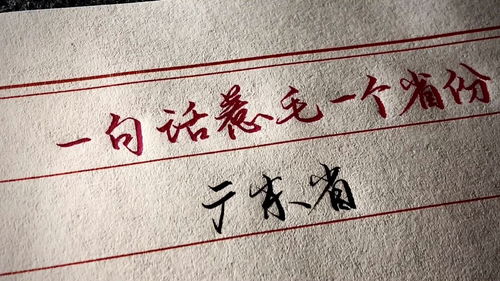 一句话惹毛一个省份
广东省